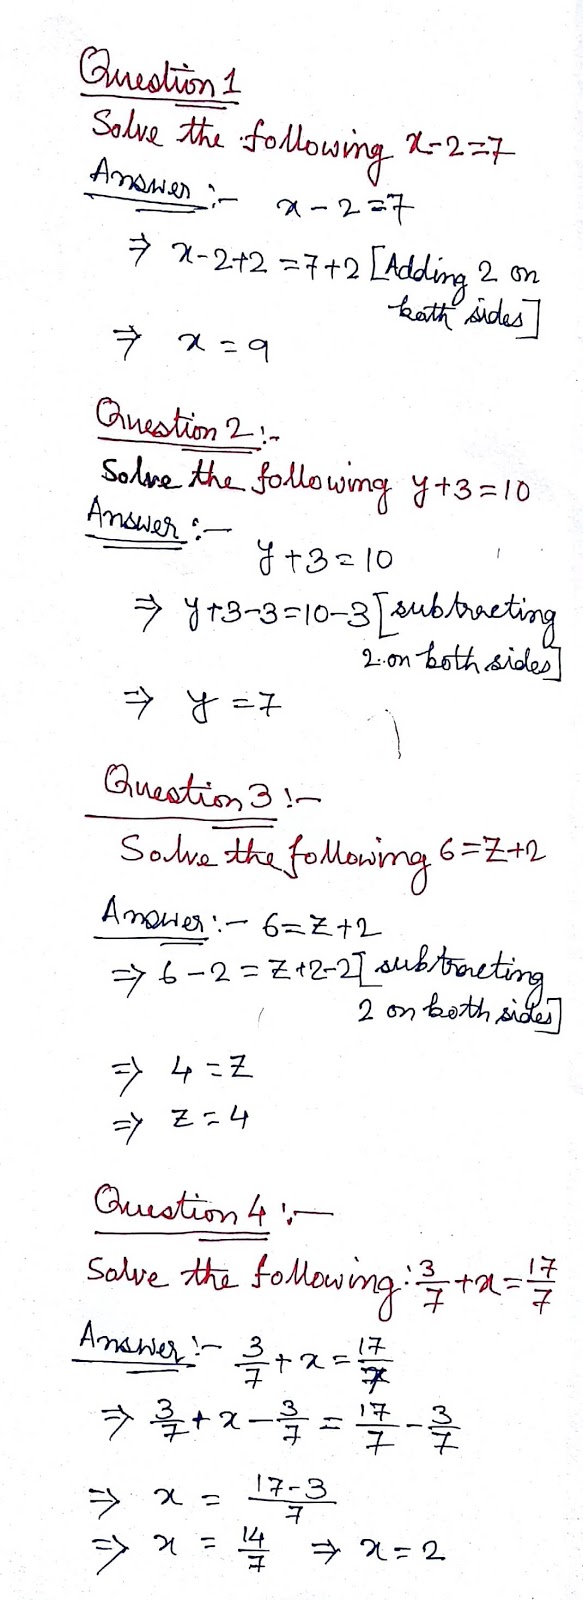 Question 1
Solve the following x-2=7
Answer:- x-2=7
⇒ x-2+2=7+2 [Adding 2 on
both sides]
⇒ x=9
Question 2:-
Solve the following y+3=10
Answer:-
y+3=10
⇒ y+3-3=10-3 [subtracting
2 on both sides]
⇒ y=7
Question 3:-
Solve the following 6=Z+2
Answer:- 6=Z+2
⇒ 6-2=Z+2-2 [subtracting
2 on both sides]
⇒ 4=Z
⇒ Z=4
Question 4:-
Solve the following: 3/7+x=17/7
Answer:- 3/7+x=17/7
⇒ 3/7+x-3/7=17/7-3/7
⇒ x=17-3/7
⇒ x=14/7 ⇒ x=2